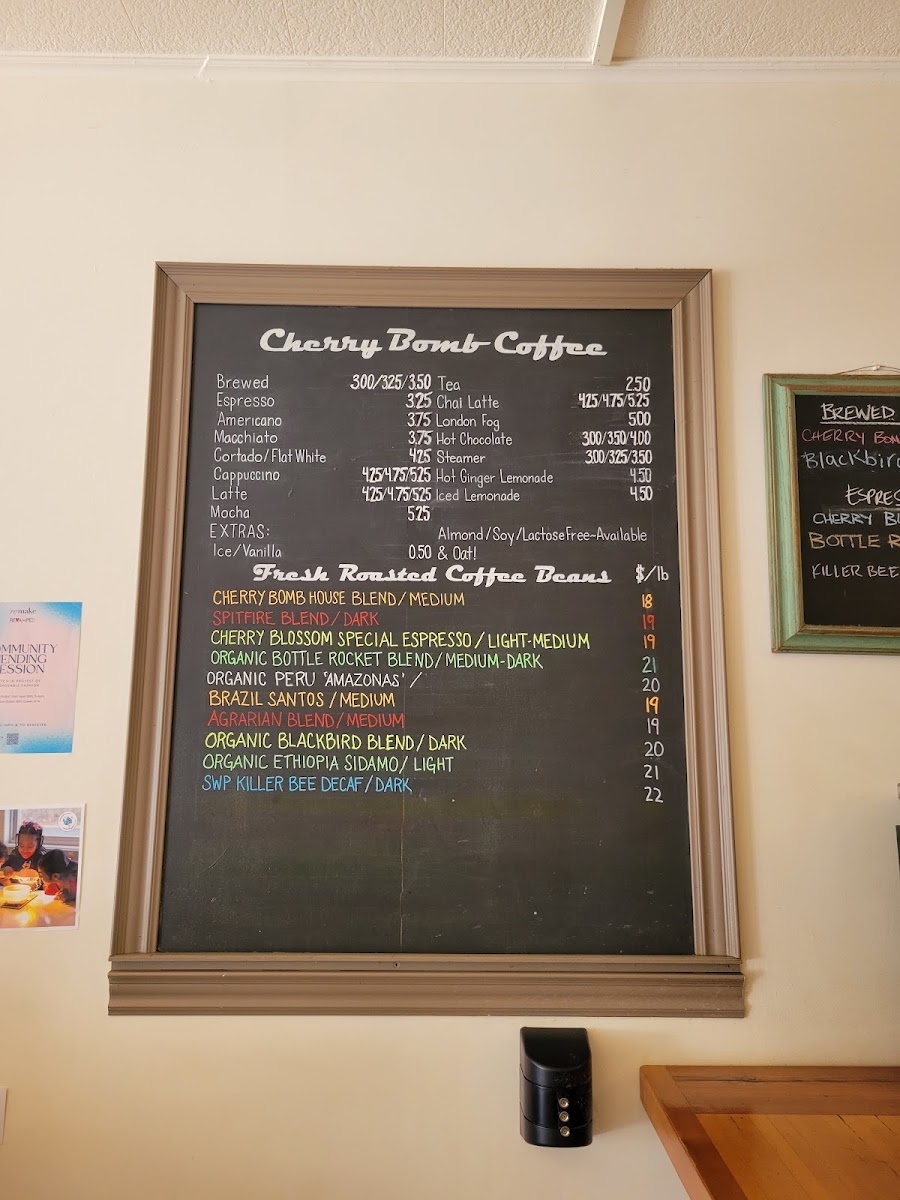 Cherry Bomb Coffee
Brewed 3.00/3.25/3.50
Espresso 3.25
Americano 3.75
Macchiato 3.75
Cortado/Flat White 4.25
Cappuccino 4.25/4.75/5.25
Latte 4.25/4.75/5.25
Mocha 5.25
EXTRAS:
Ice/Vanilla 0.50
Tea 2.50
Chai Latte 4.25/4.75/5.25
London Fog 5.00
Hot Chocolate 3.00/3.50/4.00
Steamer 3.00/3.25/3.50
Hot Ginger Lemonade 4.50
Iced Lemonade 4.50
Almond/Soy/Lactose Free~Available
& Oat!
Fresh Roasted Coffee Beans $/lb
CHERRY BOMB HOUSE BLEND/MEDIUM 18
SPITFIRE BLEND/DARK 19
CHERRY BLOSSOM SPECIAL ESPRESSO/LIGHT-MEDIUM 19
ORGANIC BOTTLE ROCKET BLEND/MEDIUM-DARK 21
ORGANIC PERU 'AMAZONAS' / 20
BRAZIL SANTOS/MEDIUM 19
AGRARIAN BLEND/MEDIUM 19
ORGANIC BLACKBIRD BLEND/DARK 20
ORGANIC ETHIOPIA SIDAMO/LIGHT 21
SWP KILLER BEE DECAF/DARK 22
BREWED
CHERRY BOM
Blackbir
ESPRES
CHERRY BL
BOTTLE R
KILLER BEE
remake
OMMUNITY
ENDING
ESSION